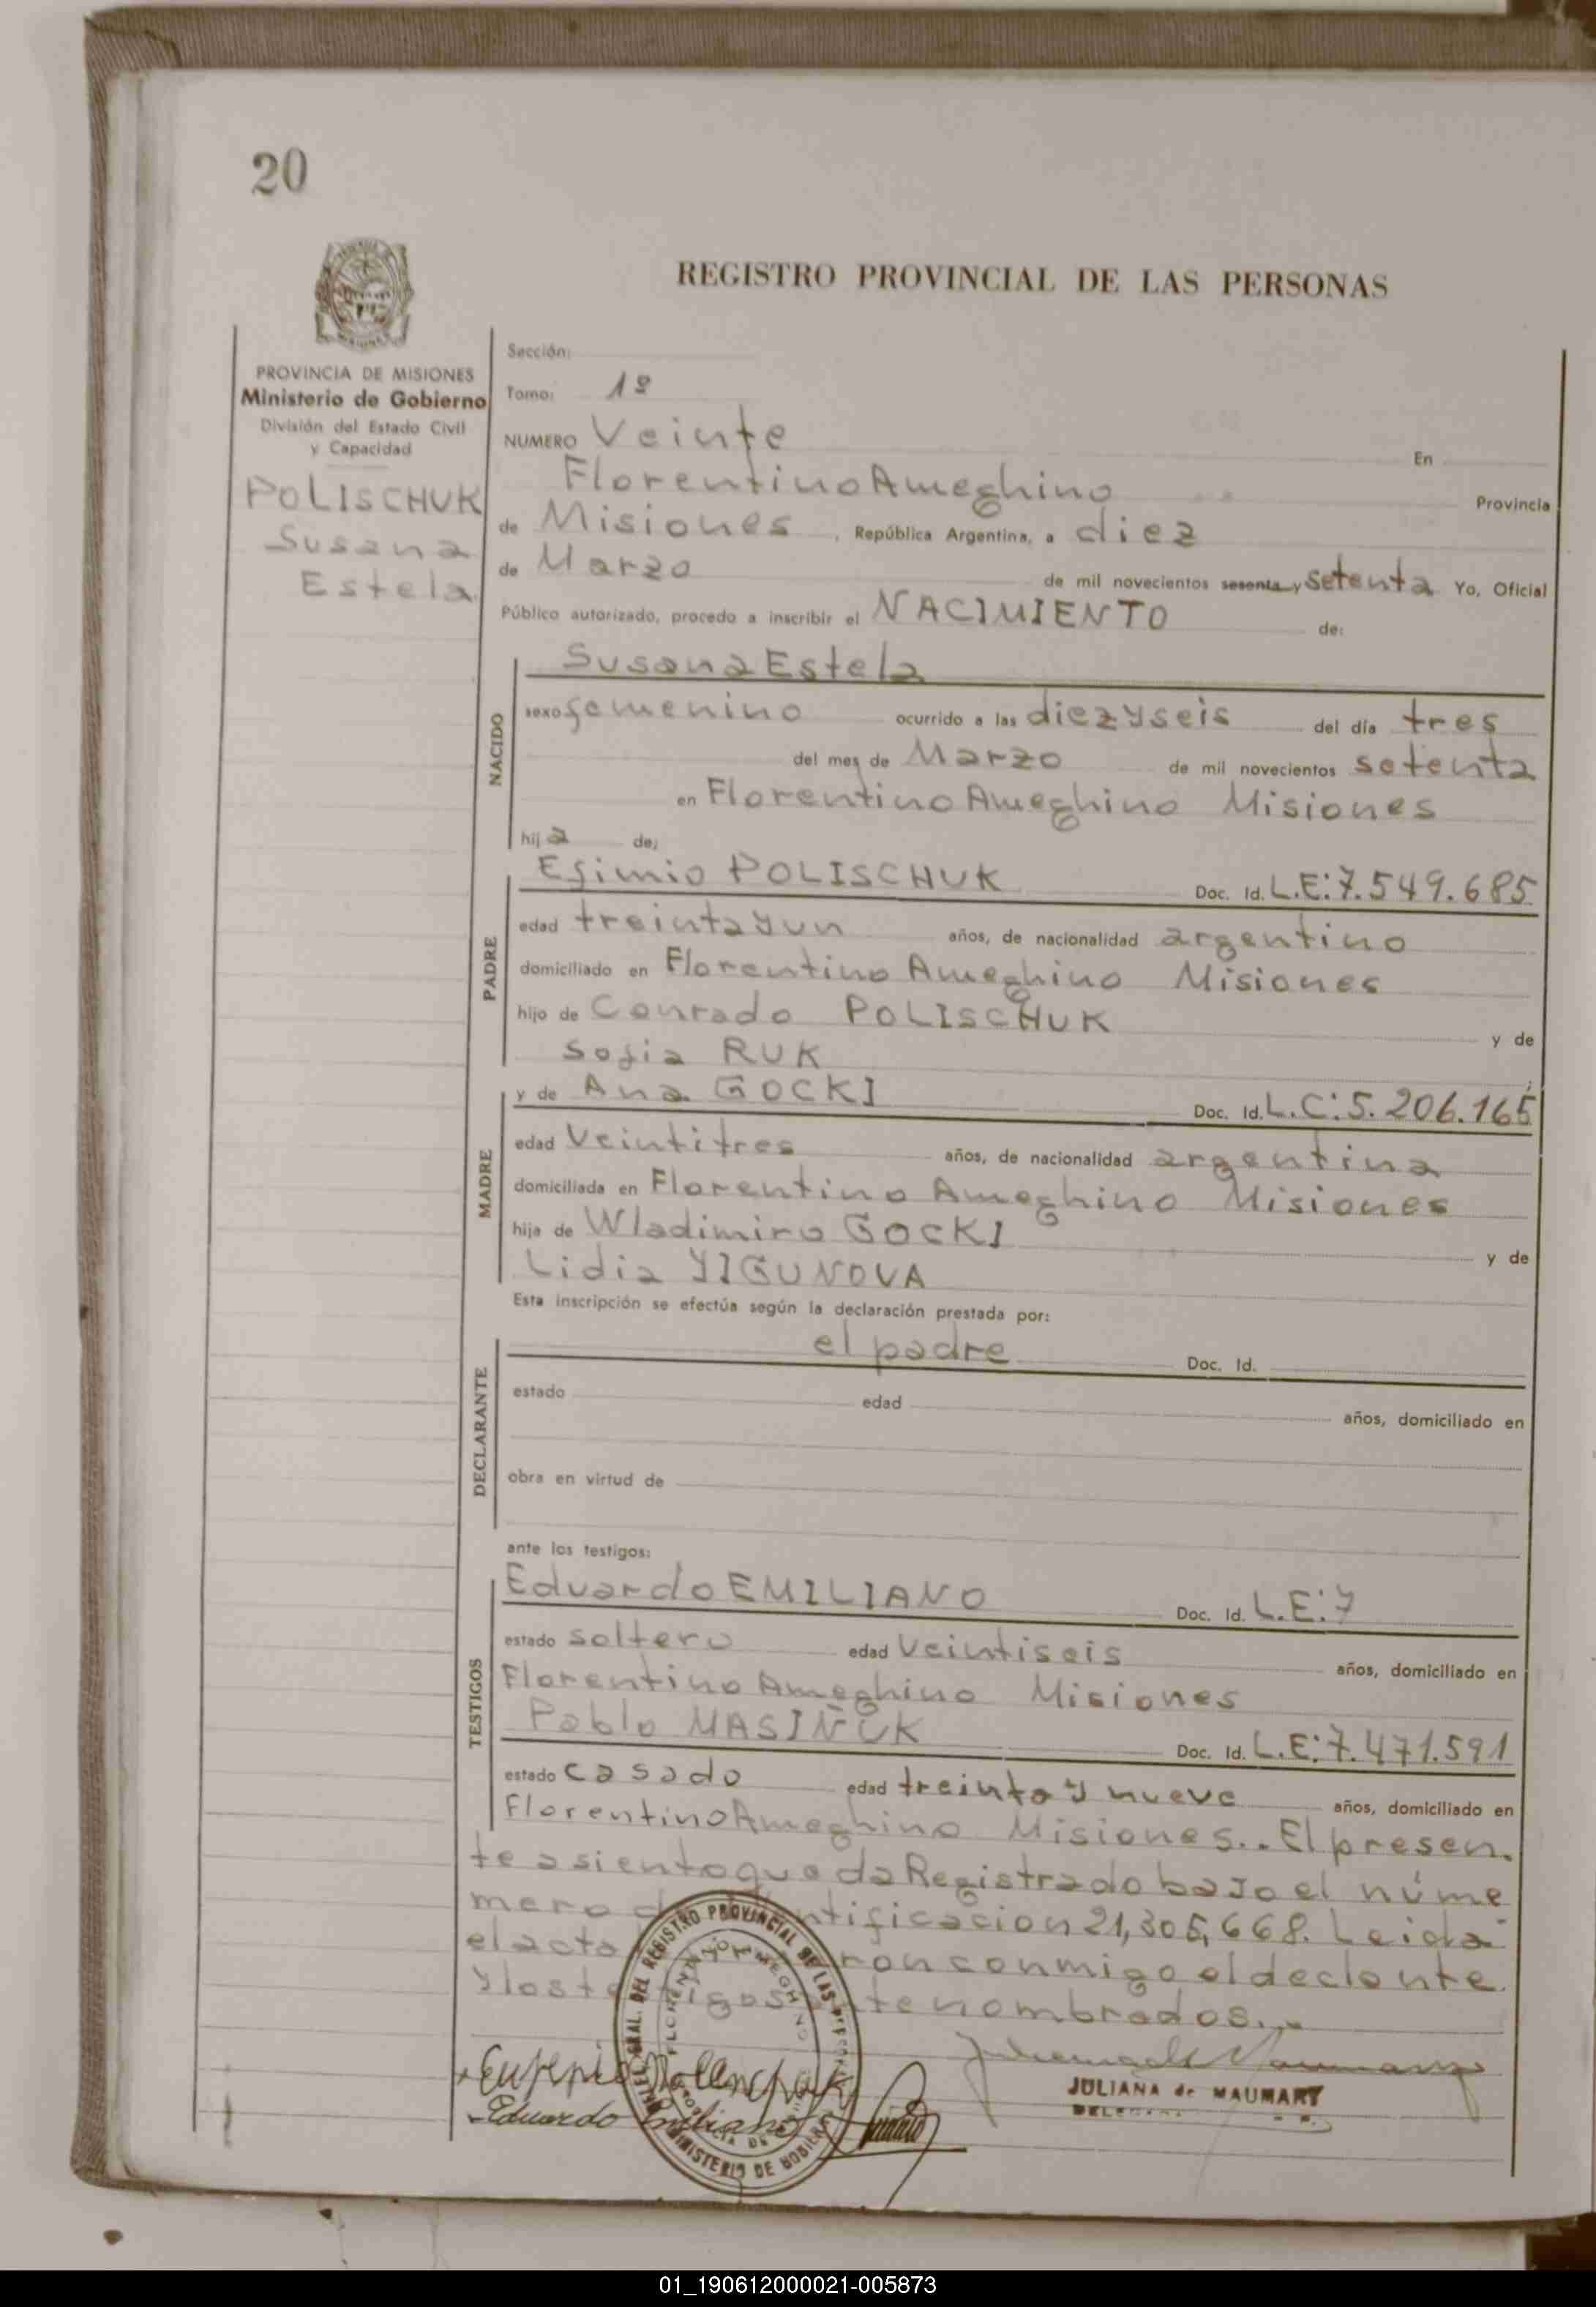 20
REGISTRO PROVINCIAL DE LAS PERSONAS
PROVINCIA DE MISIONES
Ministerio de Gobierno
División del Estado Civil
y Capacidad
POLISCHUK
Susana
Estela
Sección:
Tomo: 1º
NUMERO Veinte En
Florentino Ameghino Provincia
de Misiones, República Argentina, a diez
de Marzo de mil novecientos sesenta y setenta Yo, Oficial
Público autorizado, procedo a inscribir el NACIMIENTO de:
NACIDO
Susana Estela
sexo femenino ocurrido a las diezyseis del día tres
del mes de Marzo de mil novecientos setenta
en Florentino Ameghino Misiones
hija de:
PADRE
Efimio POLISCHUK Doc. Id. L.E:7.549.685
edad treintayun años, de nacionalidad argentino
domiciliado en Florentino Ameghino Misiones
hijo de Conrado POLISCHUK y de
Sofia RUK
MADRE
y de Ana GOCKI Doc. Id. L.C:5.206.165
edad Veintitres años, de nacionalidad argentina
domiciliada en Florentino Ameghino Misiones
hija de Wladimiro GOCKI y de
Lidia YIGUNOVA
Esta inscripción se efectúa según la declaración prestada por:
DECLARANTE
el padre Doc. Id.
estado edad años, domiciliado en
obra en virtud de
ante los testigos:
TESTIGOS
Eduardo EMILIANO Doc. Id. L.E:7
estado soltero edad Veintiseis años, domiciliado en
Florentino Ameghino Misiones
Pablo MASIÑUK Doc. Id. L.E:7.471.591
estado casado edad treinta y nueve años, domiciliado en
Florentino Ameghino Misiones.. El presen.
te asiento queda Registrado bajo el núme
mero ntificacion 21,305,668. Leida
el acta ron conmigo el declante
y los te igos te nombrados..
REGISTRO PROVINCIAL DE LAS
FLORENTINO AMEGHINO
MINISTERIO DE GOBIERNO
Eduardo Emiliano
JULIANA de MAUMARY
01_190612000021-005873